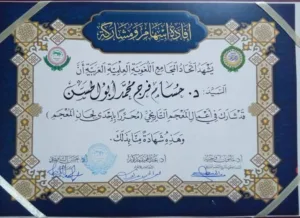 إفادة إسهام ومشاركة
يشهد اتحاد المجامع اللغوية العلمية العربية أن
السيد: د. حسام فرج محمد أبو الحسن
قد شارك في أعمال المعجم التاريخي (محررا بإحدى لجان المعجم)
وهذه شهادة منا بذلك.